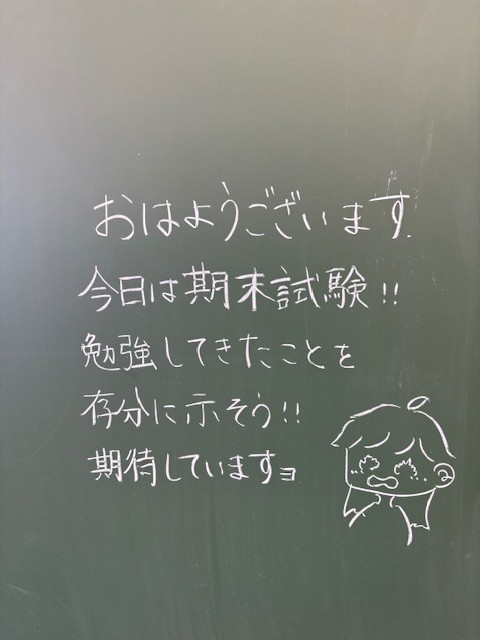 おはようございます
今日は期末試験!!
勉強してきたことを
存分に示そう!!
期待していますョ